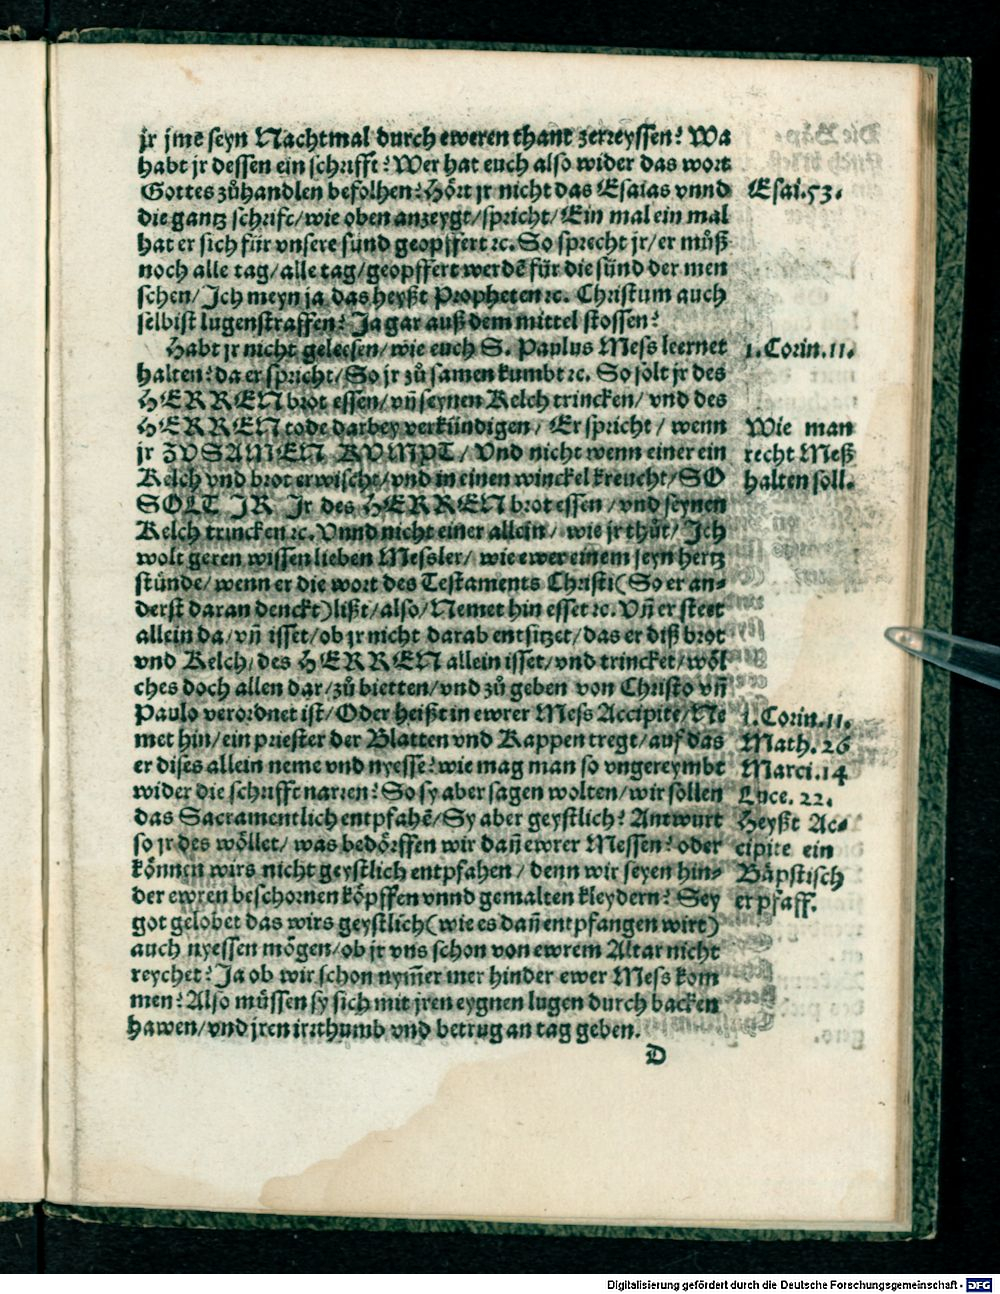 jr jme̅ seyn Nachtmal durch eweren thant zerreyssen? Wa
habt jr dessen ein schrifft? Wer hat euch also wider das wort
Gottes zůhandlen befolhen? Hört jr nicht das Esaias vnnd
die gantz schrifc/ wie oben anzeygt/ spricht/ Ein mal ein mal
hat er sich für vnsere sund geopffert ꝛc. So sprecht jr/ er můß
noch alle tag/ alle tag/ geopffert werde̅ für die sünd der men
schen/ Ich meyn ja das heyßt Propheten ꝛc. Christum auch
selbist lugenstraffen? Ja gar auß dem mittel stossen?
Esai. 53.
Habt jr nicht gelecsen/ wie euch S. Paulus Mess leernet
halten? da er spricht/ So jr zů samen kumbt ꝛc. So solt jr des
HERREN brot essen/ vn̅ seynen Kelch trincken/ vnd des
HERREN tode darbey verkündigen/ Er spricht/ wenn
jr ZVSAMEN KVMPT/ Vnd nicht wenn einer ein
Kelch vnd brot erwischt/ vnd in einen winckel kreucht/ SO
SOLT JR Jr des HERREN brot essen/ vnd seynen
Kelch trincken ꝛc. Vnnd nicht einer allein/ wie jr thůt/ Ich
wolt geren wissen lieben Messler/ wie ewer einem seyn hertz
stünde/ wenn er die wort des Testaments Christi (So er an-
derst daran denckt) lißt/ also/ Nemet hin esset ꝛc. Vn̅ er steet
allein da/ vn̅ isset/ ob jr nicht darab entsitzet/ das er diß brot
vnd Kelch/ des HERREN allein isset/ vnd trincket/ wöl
ches doch allen dar/ zů bietten/ vnd zů geben von Christo vn̅
Paulo verordnet ist/ Oder heißt in ewrer Mess Accipite/ Ne
met hin/ ein priester der Blatten vnd Kappen tregt/ auf das
er dises allein neme vnd nyesse? wie mag man so vngereymbt
wider die schrifft narren? So sy aber sagen wolten/ wir sollen
das Sacramentlich entpfahe̅/ Sy aber geystlich? Antwurt
so jr des wöllet/ was bedörffen wir dan̅ ewrer Messen? oder
können wirs nicht geystlich entpfahen/ denn wir seyen hin-
der ewren beschornen köpffen vnnd gemalten kleydern? Sey
got gelobet das wirs geystlich (wie es dan̅ entpfangen wirt)
auch nyessen mögen/ ob jr vns schon von ewrem Altar nicht
reychet? Ja ob wir schon nym̅er mer hinder ewer Mess kom
men? Also müssen sy sich mit jren eygnen lugen durch backen
hawen/ vnd jren irrthumb vnd betrug an tag geben.
1. Corin. 11.
Wie man
recht Meß
halten soll.
1. Corin. 11.
Math. 26
Marci. 14
Luce. 22.
Heyßt Ac-
cipite ein
Bäpstisch
er pfaff.
D
Digitalisierung gefördert durch die Deutsche Forschungsgemeinschaft - DFG